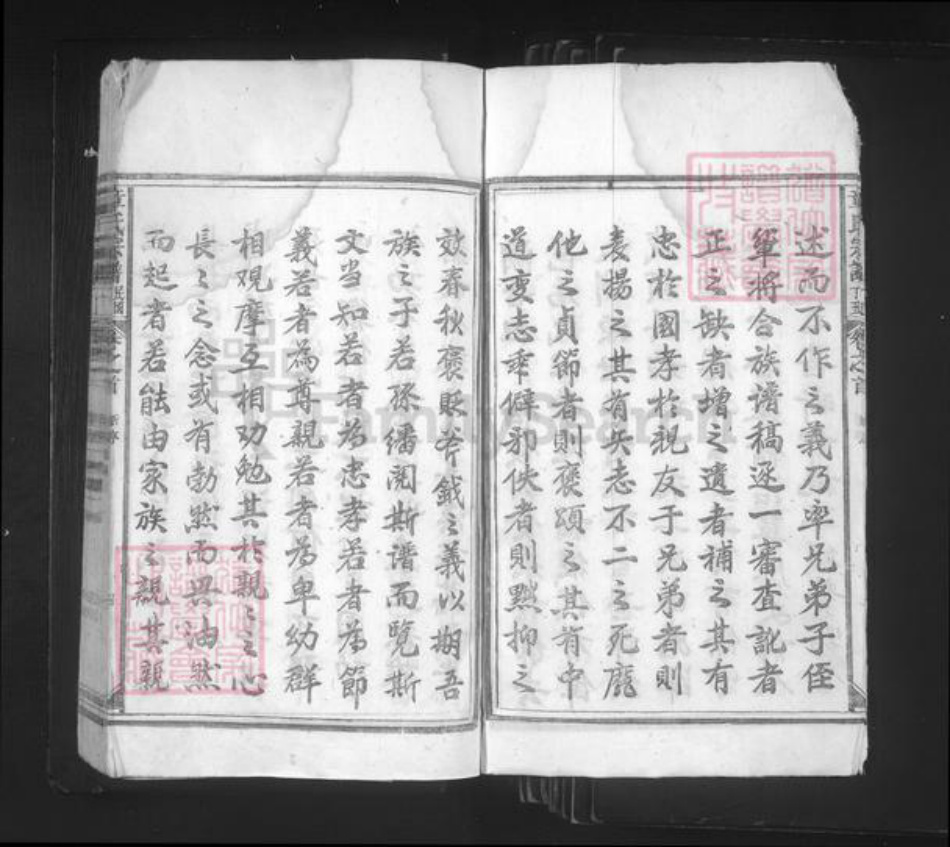 述而不作之義乃率兄弟子侄
輩將合族譜稿逐一審查訛者
正之缺者增之遺者補之其有
忠於國孝於親友于兄弟者則
表揚之其有矢志不二之死靡
他之貞節者則褒頌之其有中
道变志乖僻邪佚者則黙抑之
效春秋褒貶斧鉞之義以期吾
族之子若孫繙閱斯譜而覽斯
文当知若者為忠孝若者為節
義若者為尊親若者為卑幼群
相观摩互相劝勉其於親親之心
長長之念或有勃然而興油然
而起者若能由家族之親其親
FamilySearch